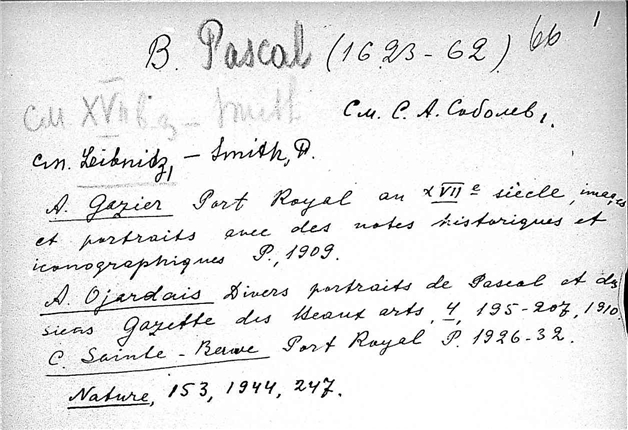 1
B. Pascal (1623-62) 66
см XVII в з - Smith
См. С. А. Соболев,
сm. Leibnitz, - Smith, D.
A. Gazier Port Royal au XVII e siècle, images
et portraits avec des notes historiques et
iconographiques P., 1909.
A. Ojardais Divers portraits de Pascal et des
siens Gazette des beaux arts, 4, 195-207, 1910
C. Sainte-Beuve Port Royal P. 1926-32.
Nature, 153, 1944, 247.